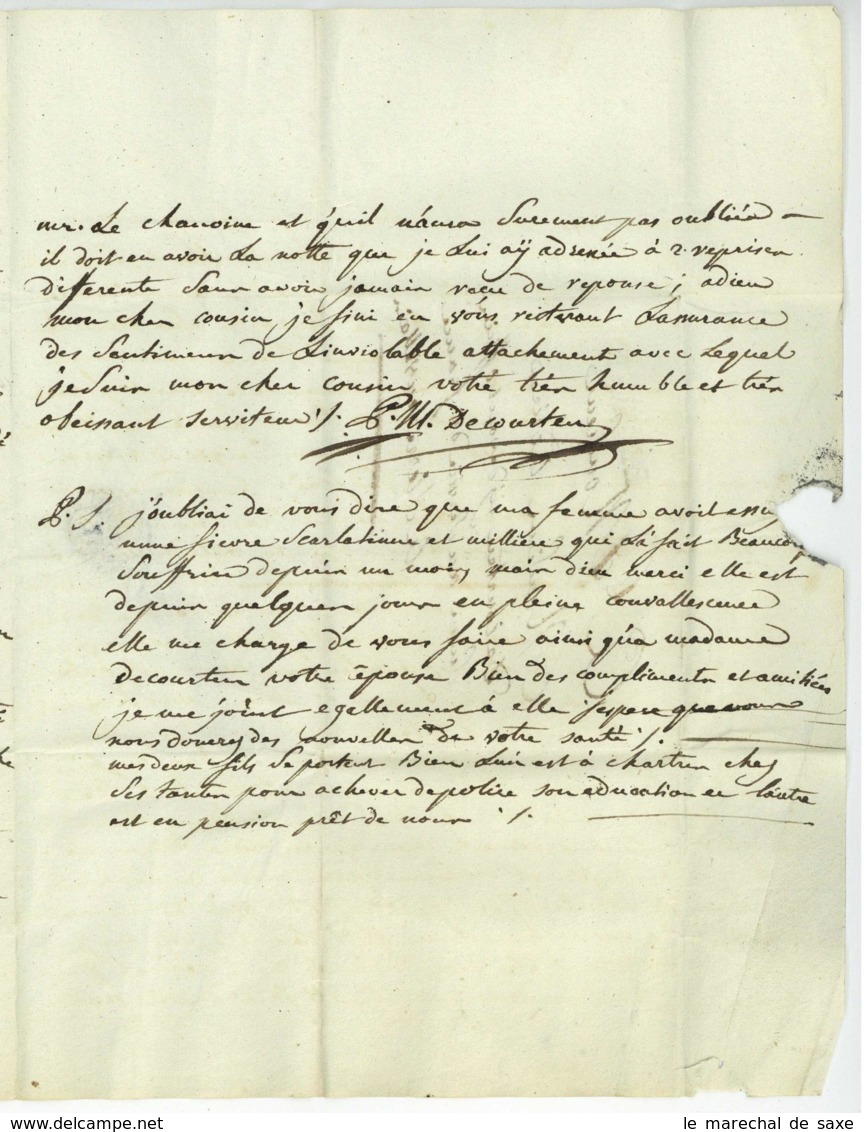 mr. Le chanoine et qu'il n'aura Surement pas oubliée –
il doit en avoir La notte que je Lui aÿ adressée à 2 reprises
differente Sans avoir jamais recu de reponse ; adieu
mon cher cousin je fini en vous reiterant Lassurance
des Sentimens de L'inviolable attachement avec Lequel
je Suis mon cher cousin votre très humble et très
obeissant serviteur ./. P. M. Decourten
P. S. j'oubliai de vous dire que ma femme avoit essu
unne fievre Scarlatinne et milliere qui L'a fait Beaucoup
Souffrir depuis un mois, mais dieu merci elle est
depuis quelques jours en pleine convallescence
elle me charge de vous faire ainsi qu'a madame
Decourten votre épouse Bien des compliments et amitiées
je me joint egallement à elle j'espere que vous
nous donerez des nouvelles de votre santé ./.
mes deux fils Se portent Bien L'un est à chartres chez
Ses tantes pour achever de polire son education et l'autre
est en pension prêt de nous ./.
le marechal de saxe